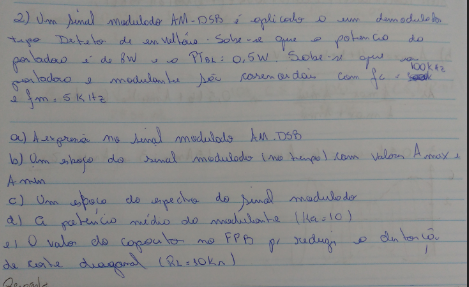 2) Um sinal modulado AM-DSB é aplicado a um demodulador
tipo Detetor de envoltória. Sabe-se que a potência da
portadora é de 8W e a PBL = 0,5W. Sabe-se que a
portadora e modulante são cossenoidais com fc = 100KHz
e fm = 5KHz
a) A expressão no sinal modulado AM-DSB
b) Um esboço do sinal modulado (no tempo) com valores Amax e
Amin
c) Um esboço do espectro do sinal modulado
d) A potência média do modulante (Ka=10)
e) O valor do capacitor no FPB p/ reduzir a distorção
de corte diagonal (RL=10KΩ)